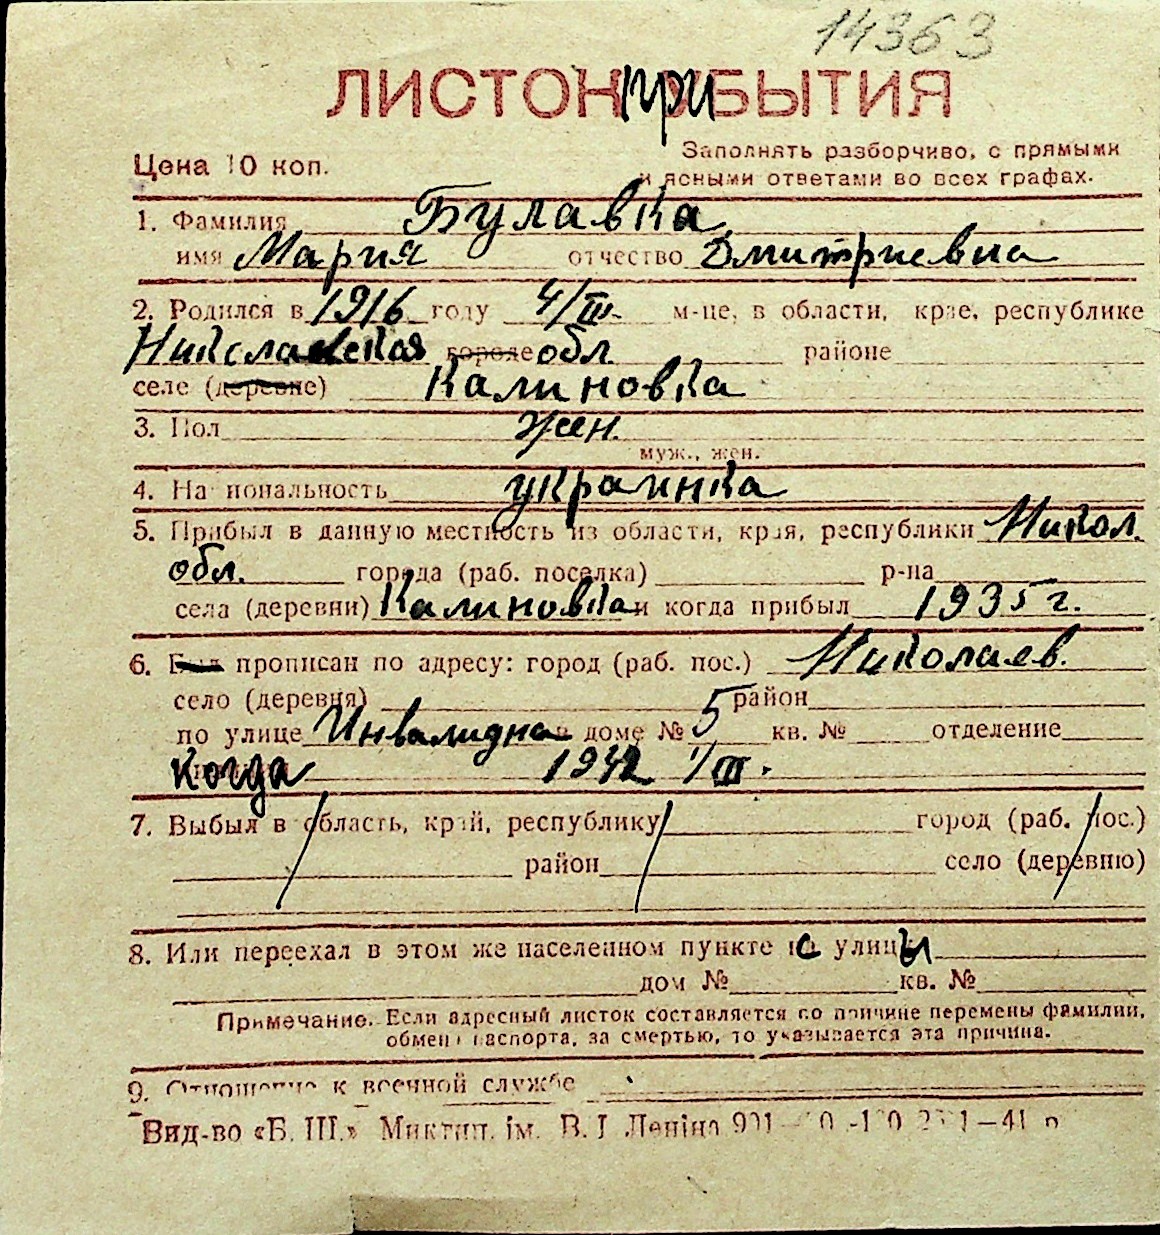 14363
ЛИСТОК при БЫТИЯ
Цена 10 коп.
Заполнять разборчиво, с прямыми
и ясными ответами во всех графах.
1. Фамилия Булавка
имя Мария отчество Дмитриевна
2. Родился в 1916 году 4/III. м-це, в области, крае, республике
Николаевская городе обл. районе
селе (деревне) Калиновка
3. Пол жен.
муж., жен.
4. Национальность украинка
5. Прибыл в данную местность из области, края, республики Никол.
обл. города (раб. поселка) р-на
села (деревни) Калиновка и когда прибыл 1935 г.
6. Был прописан по адресу: город (раб. пос.) Николаев.
село (деревня) район
по улице Инвалидна в доме № 5 кв. № отделение
когда 1942 1/III.
7. Выбыл в область, край, республику город (раб. пос.)
район село (деревню)
8. Или переехал в этом же населенном пункте с улицы
дом № кв. №
Примечание. Если адресный листок составляется по причине перемены фамилии,
обмена паспорта, за смертью, то указывается эта причина.
9. Отношение к военной службе
Вид-во «Б. Ш.» Миктип. ім. В. І. Леніна